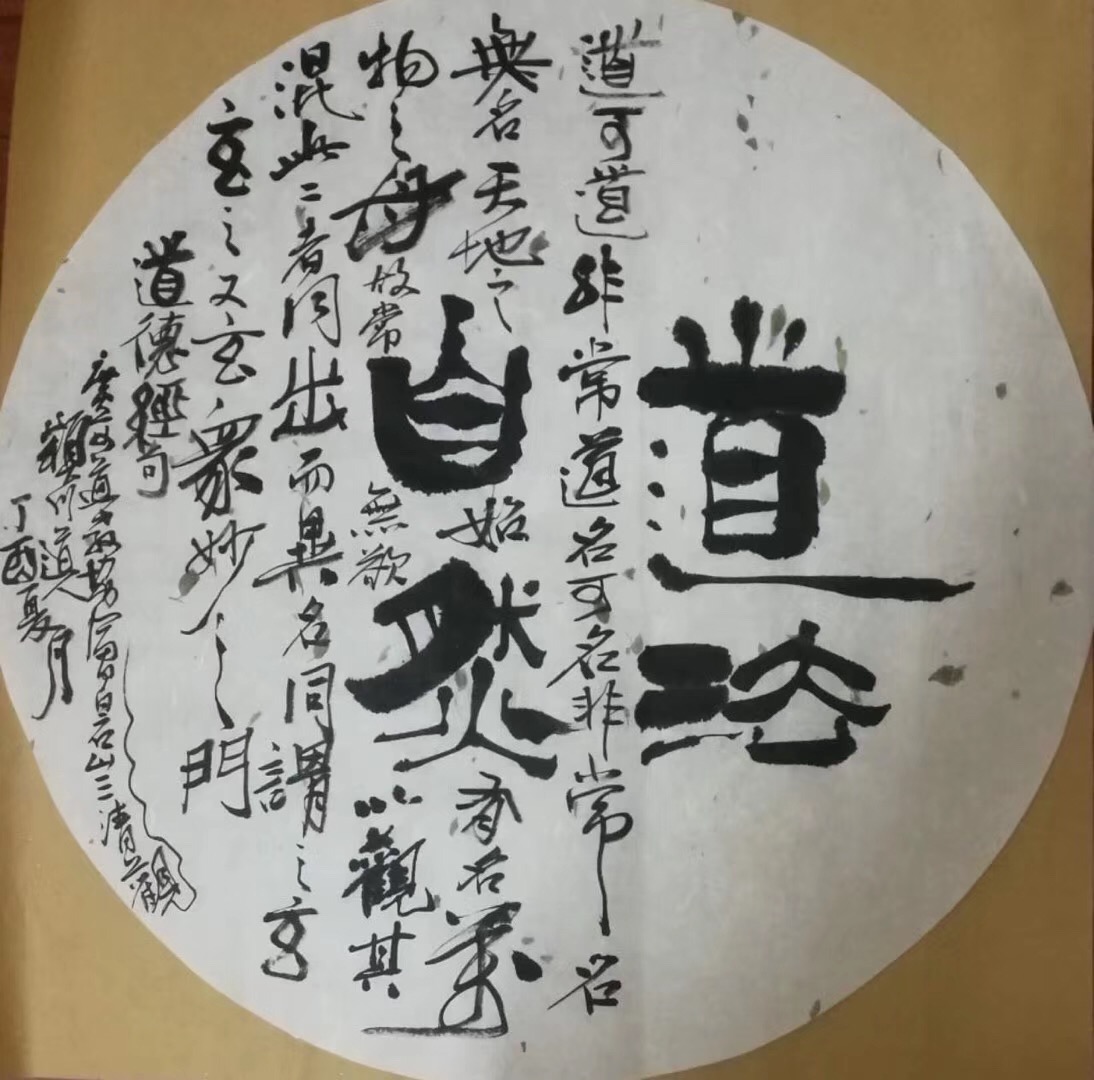 道法
自然
道可道非常道名可名非常名
無名天地之始有名萬
物之母故常無欲以觀其
混此二者同出而異名同謂之玄
玄之又玄衆妙之門
道德經句
道 山三清觀
川道人
丁酉夏月